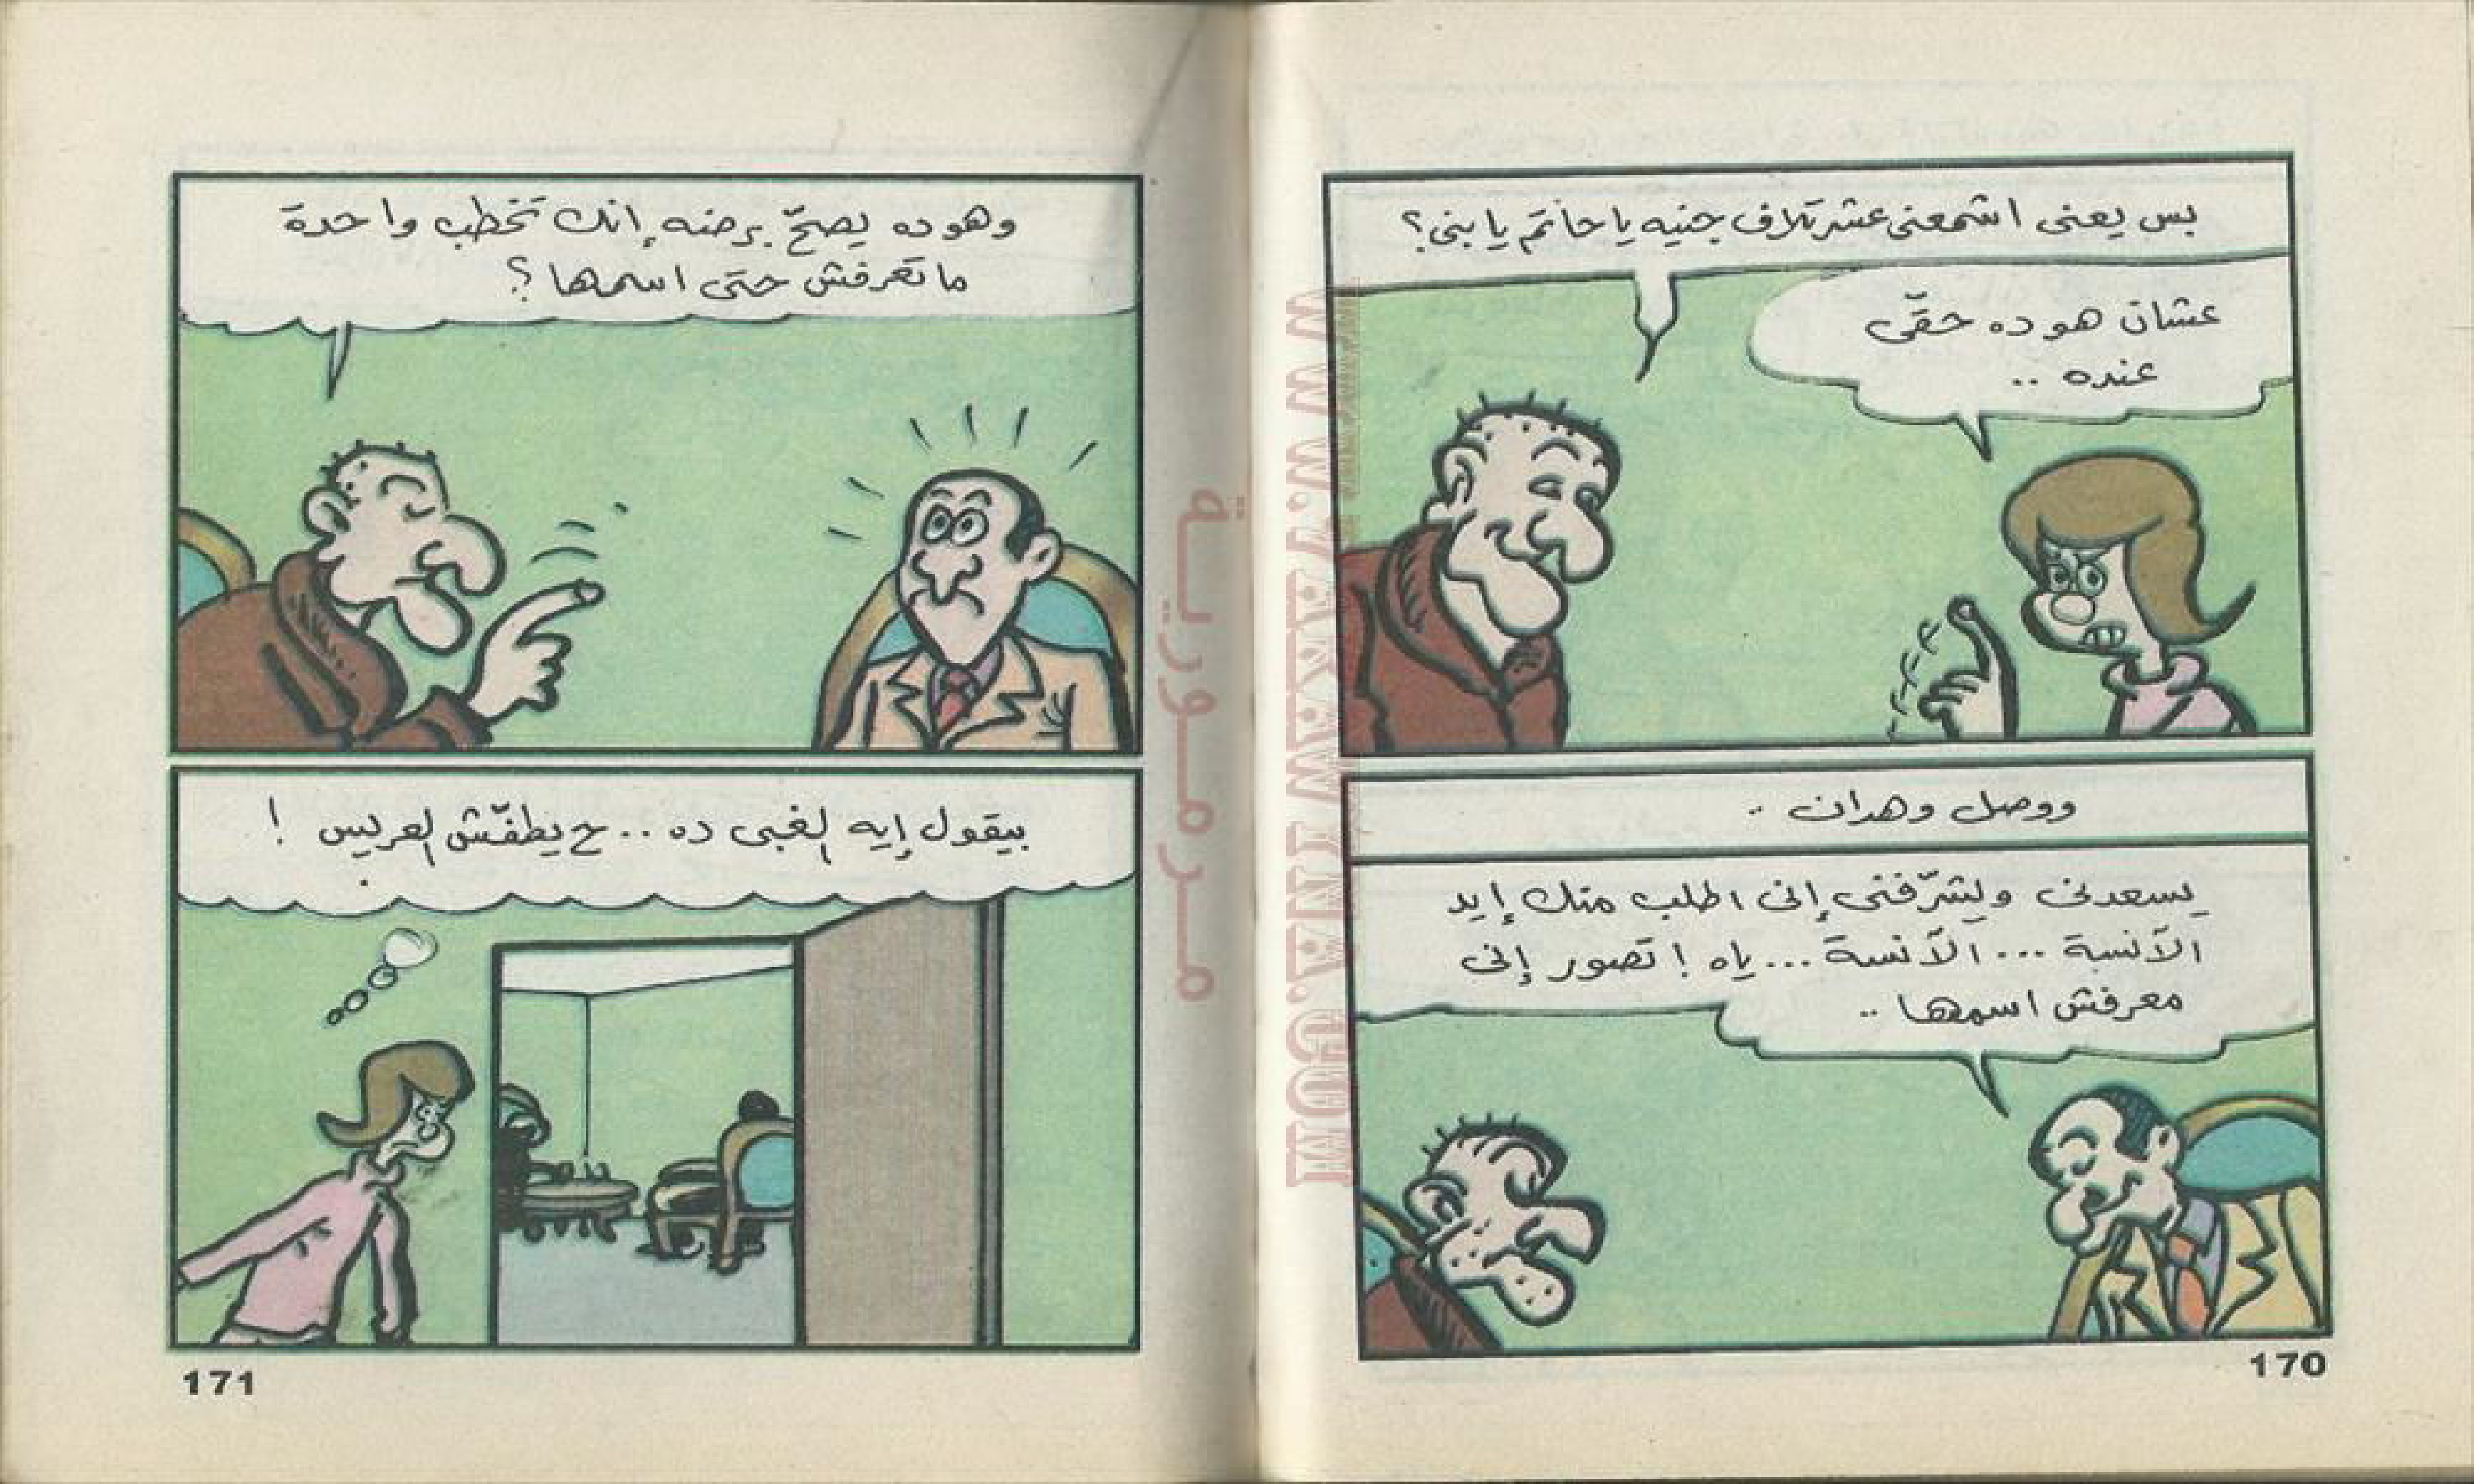 بس يعنى اشمعنى عشرتلاف جنيه يا حاتم يا بنى؟
عشان هو ده حقّى
عنده ..
ووصل وهدان ..
يسعدنى ويشرّفنى إنى اطلب منك إيد
الآنسة ... الآنسة ... ياه ! تصور إنى
معرفش اسمها ..
170
وهو ده يصحّ برضه إنك تخطب واحدة
ما تعرفش حتى اسمها ؟
بيقول إيه الغبى ده .. ح يطفّش العريس !
171
مرمورية